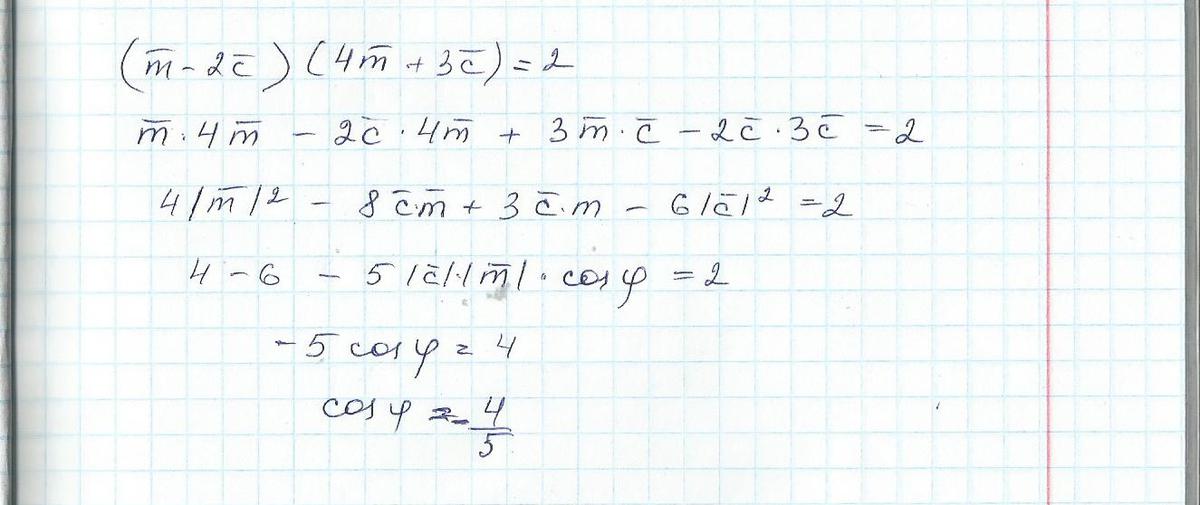 (m̅ - 2c̅) (4m̅ + 3c̅) = 2
m̅ · 4m̅ - 2c̅ · 4m̅ + 3m̅ · c̅ - 2c̅ · 3c̅ = 2
4|m̅|² - 8c̅·m̅ + 3c̅·m - 6|c̅|² = 2
4 - 6 - 5|c̅|·|m̅| · cos φ = 2
-5 cos φ = 4
cos φ = -4/5